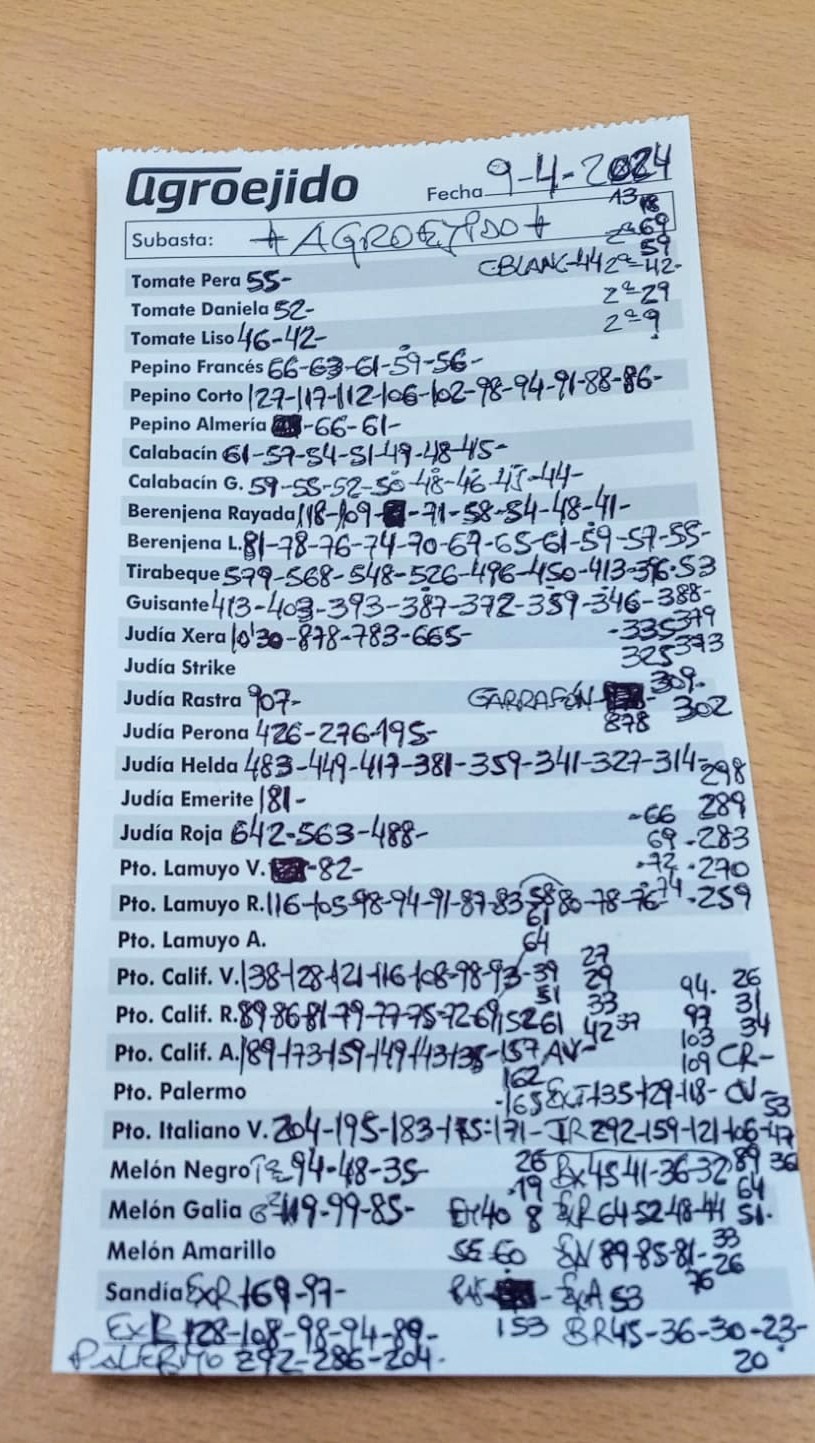 agroejido
Fecha 9-4-2024
13 18
Subasta: +AGROEJIDO+ 2ª69
59
Tomate Pera 55- C-BLANC-44 2ª-42-
Tomate Daniela 52- 2ª-29
Tomate Liso 46-42- 2ª9
Pepino Francés 66-63-61-59-56-
Pepino Corto 127-117-112-106-102-98-94-91-88-86-
Pepino Almería -66-61-
Calabacín 61-57-54-51-49-48-45-
Calabacín G. 59-55-52-50-48-46-45-44-
Berenjena Rayada 118-109- -71-58-54-48-41-
Berenjena L. 81-78-76-74-70-67-65-61-59-57-55-
Tirabeque 579-568-548-526-496-450-413-396-53
Guisante 413-403-393-387-372-359-346-388-
-335 379
Judía Xera 10'30-878-783-665-
325 373
Judía Strike
309-
Judía Rastra 907- GARRAFÓN - 302
878
Judía Perona 426-276-195-
Judía Helda 483-449-417-381-359-341-327-314-298
Judía Emerite 181- 289
-66
Judía Roja 642-563-488- 69-283
Pto. Lamuyo V. -82- -72-270
Pto. Lamuyo R. 116-105-98-94-91-87-83 58 80-78-76-74-259
61
Pto. Lamuyo A. 64
27
Pto. Calif. V. 138-128-121-116-108-98-93-39 29 94- 26
51 33 97 31
Pto. Calif. R. 89-86-81-79-77-75-72-69 52 61 42 37 34
103
Pto. Calif. A. 189-173-159-149-143-135-157 AV- 109 CR-
162
Pto. Palermo -165 EXT-135-129-118- CV-53
Pto. Italiano V. 204-195-183-175-171-IR 292-159-121-106-47
Melón Negro 94-48-35- 26 Bx 45 41-36-32 89 36
-19 64
Melón Galia 119-99-85- EX 40 8 EXR 64-52-48-44 51-
33
Melón Amarillo SE-60 EN 89-85-81- 26
76
Sandía EXR 169-97- - EXA 53
EXR 128-108-98-94-89- 153 BR45-36-30-23-
PALERMO 292-286-204- 20